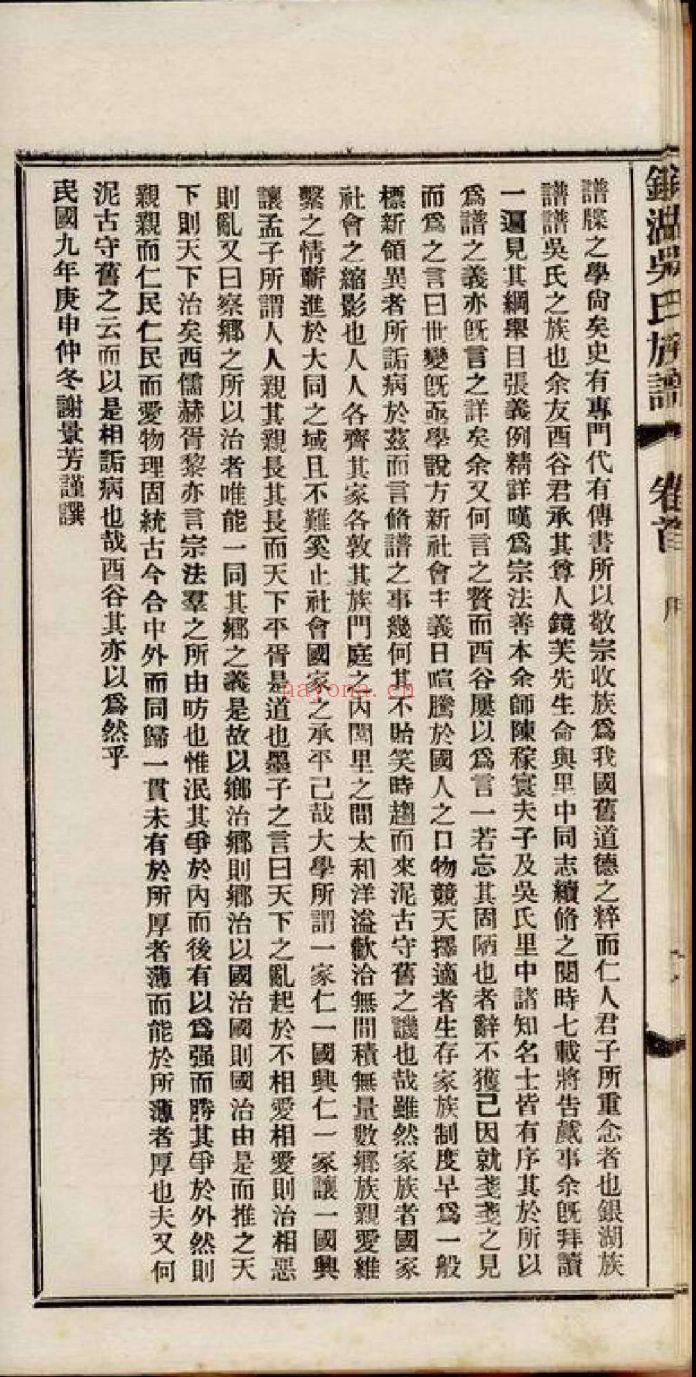 銀湖吳氏族譜 卷首 序
譜牒之學尙矣史有專門代有傳書所以敬宗收族爲我國舊道德之粹而仁人君子所重念者也銀湖族
譜譜吳氏之族也余友酉谷君承其尊人鏡芙先生命與里中同志續脩之閱時七載將告蕆事余旣拜讀
一遍見其綱舉目張義例精詳嘆爲宗法善本余師陳稼寰夫子及吳氏里中諸知名士皆有序其於所以
爲譜之義亦旣言之詳矣余又何言之贅而酉谷屢以爲言一若忘其固陋也者辭不獲已因就戔戔之見
而爲之言曰世變旣亟學說方新社會主義日喧騰於國人之口物競天擇適者生存家族制度早爲一般
標新領異者所詬病於茲而言脩譜之事幾何其不貽笑時趨而來泥古守舊之譏也哉雖然家族者國家
社會之縮影也人人各齊其家各敦其族門庭之內閭里之間太和洋溢歡洽無間積無量數鄉族親愛維
繫之情蘄進於大同之域且不難奚止社會國家之承平已哉大學所謂一家仁一國興仁一家讓一國興
讓孟子所謂人人親其親長其長而天下平胥是道也墨子之言曰天下之亂起於不相愛相愛則治相惡
則亂又曰察鄉之所以治者唯能一同其鄉之義是故以鄉治鄉則鄉治以國治國則國治由是而推之天
下則天下治矣西儒赫胥黎亦言宗法羣之所由昉也惟泯其爭於內而後有以爲强而勝其爭於外然則
親親而仁民仁民而愛物理固統古今合中外而同歸一貫未有於所厚者薄而能於所薄者厚也夫又何
泥古守舊之云而以是相詬病也哉酉谷其亦以爲然乎
民國九年庚申仲冬謝景芳謹譔
nayona.cn